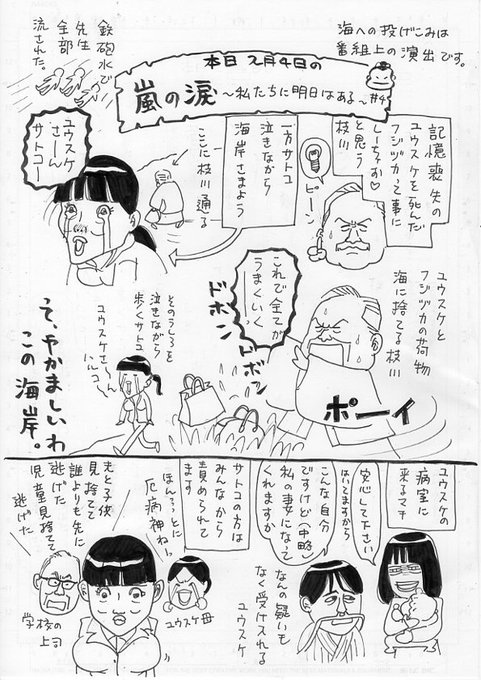 海への投げこみは
番組上の演出です。
本日2月4日の
嵐の涙
～私たちに明日はある～#4
鉄砲水で
先生
全部
流された。
記憶喪失の
ユウスケを死んだ
フジヅカって事に
しーちゃお♡
と思う
枝川
ピーン
一方サトコ
泣きながら
海岸さまよう
ここに枝川通る
ユウスケ
さーん
サトコー
ユウスケと
フジヅカの荷物
海に捨てる枝川
これで全てが
うまくいく!
ドボン
ドボン
ポーイ
そのうしろを
泣きながら
歩くサトコ
ユウスケさ〜ん
ハルコ〜
て、やかましいわ
この海岸。
ユウスケの
病室に
来るマチ
安心して下さい
はいてますから
こんな自分
ですけど(中略)
私の妻になって
くれますか
なんの疑いも
なく受け入れる
ユウスケ
サトコの方は
みんなから
責められて
ます
ほんっっとに
厄病神ねーっ
ユウスケ母
もと子供
見捨てて
誰よりも先に
逃げた
児童見捨てて
逃げた
学校の
上司